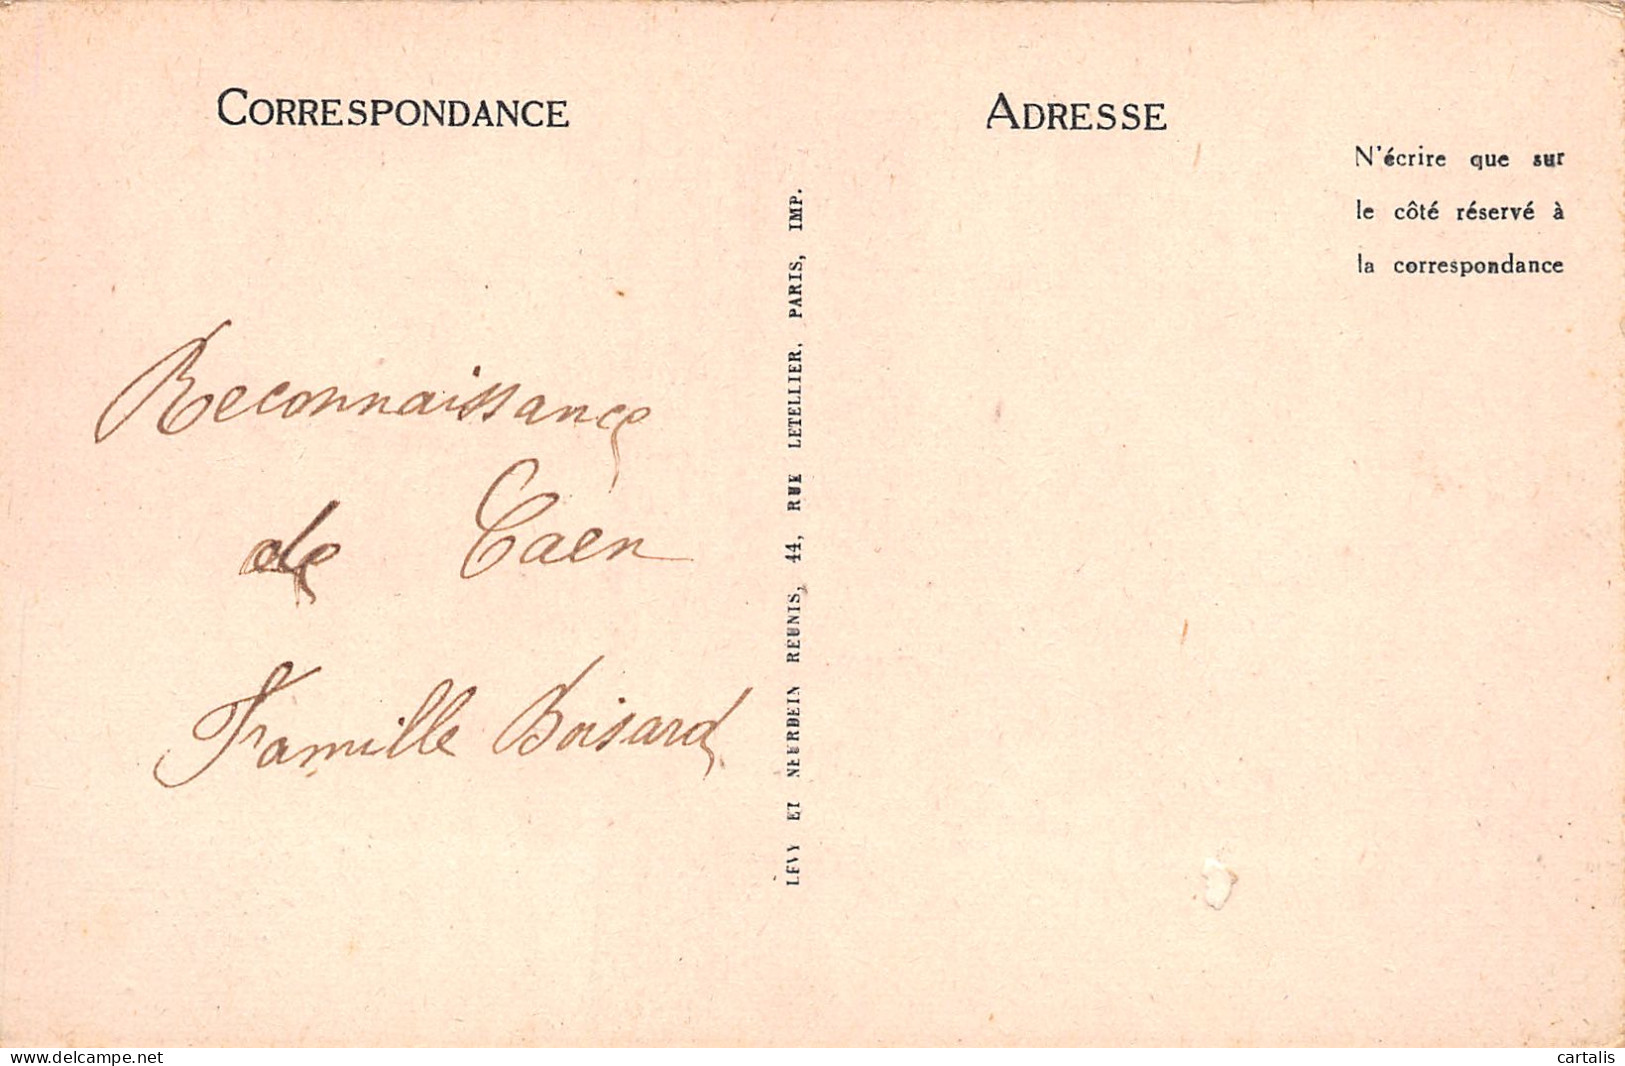 CORRESPONDANCE
Reconnaissance
de Caen
Famille Boisard
LEVY ET NEURDEIN REUNIS, 44, RUE LETELLIER, PARIS, IMP.
ADRESSE
N'écrire que sur
le côté réservé à
la correspondance
delcampe.net
cartalis